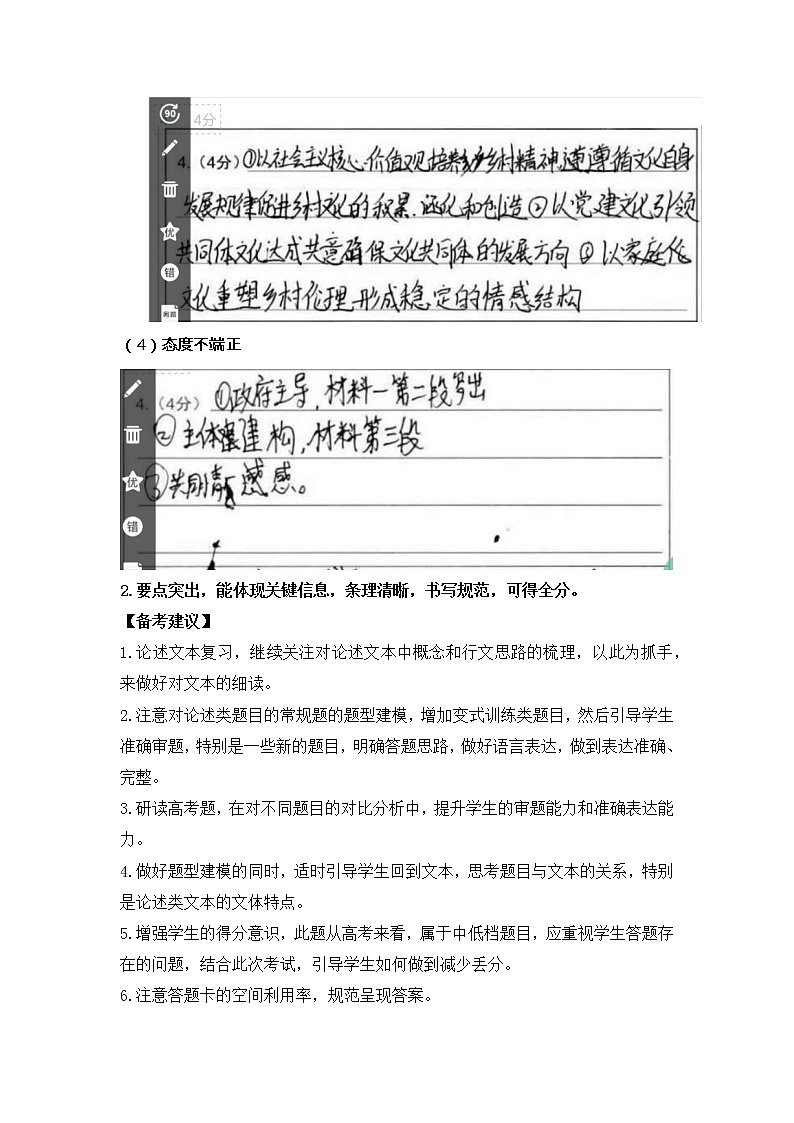 90
4分
4.（4分）①以社会主义核心价值观培养乡村精神,遵循文化自身
发展规律促进乡村文化的积累.进化和创造②以党建文化引领
共同体文化达成共意确保文化共同体的发展方向③以家庭伦
文化重塑乡村伦理,形成稳定的情感结构
优
错
问题
（4）态度不端正
4.（4分）①政府主导,材料一第二段
②主体建构,材料第三段
③共同情感。
优
错
2.要点突出，能体现关键信息，条理清晰，书写规范，可得全分。
【备考建议】
1.论述文本复习，继续关注对论述文本中概念和行文思路的梳理，以此为抓手，
来做好对文本的细读。
2.注意对论述类题目的常规题的题型建模，增加变式训练类题目，然后引导学生
准确审题，特别是一些新的题目，明确答题思路，做好语言表达，做到表达准确、
完整。
3.研读高考题，在对不同题目的对比分析中，提升学生的审题能力和准确表达能
力。
4.做好题型建模的同时，适时引导学生回到文本，思考题目与文本的关系，特别
是论述类文本的文体特点。
5.增强学生的得分意识，此题从高考来看，属于中低档题目，应重视学生答题存
在的问题，结合此次考试，引导学生如何做到减少丢分。
6.注意答题卡的空间利用率，规范呈现答案。